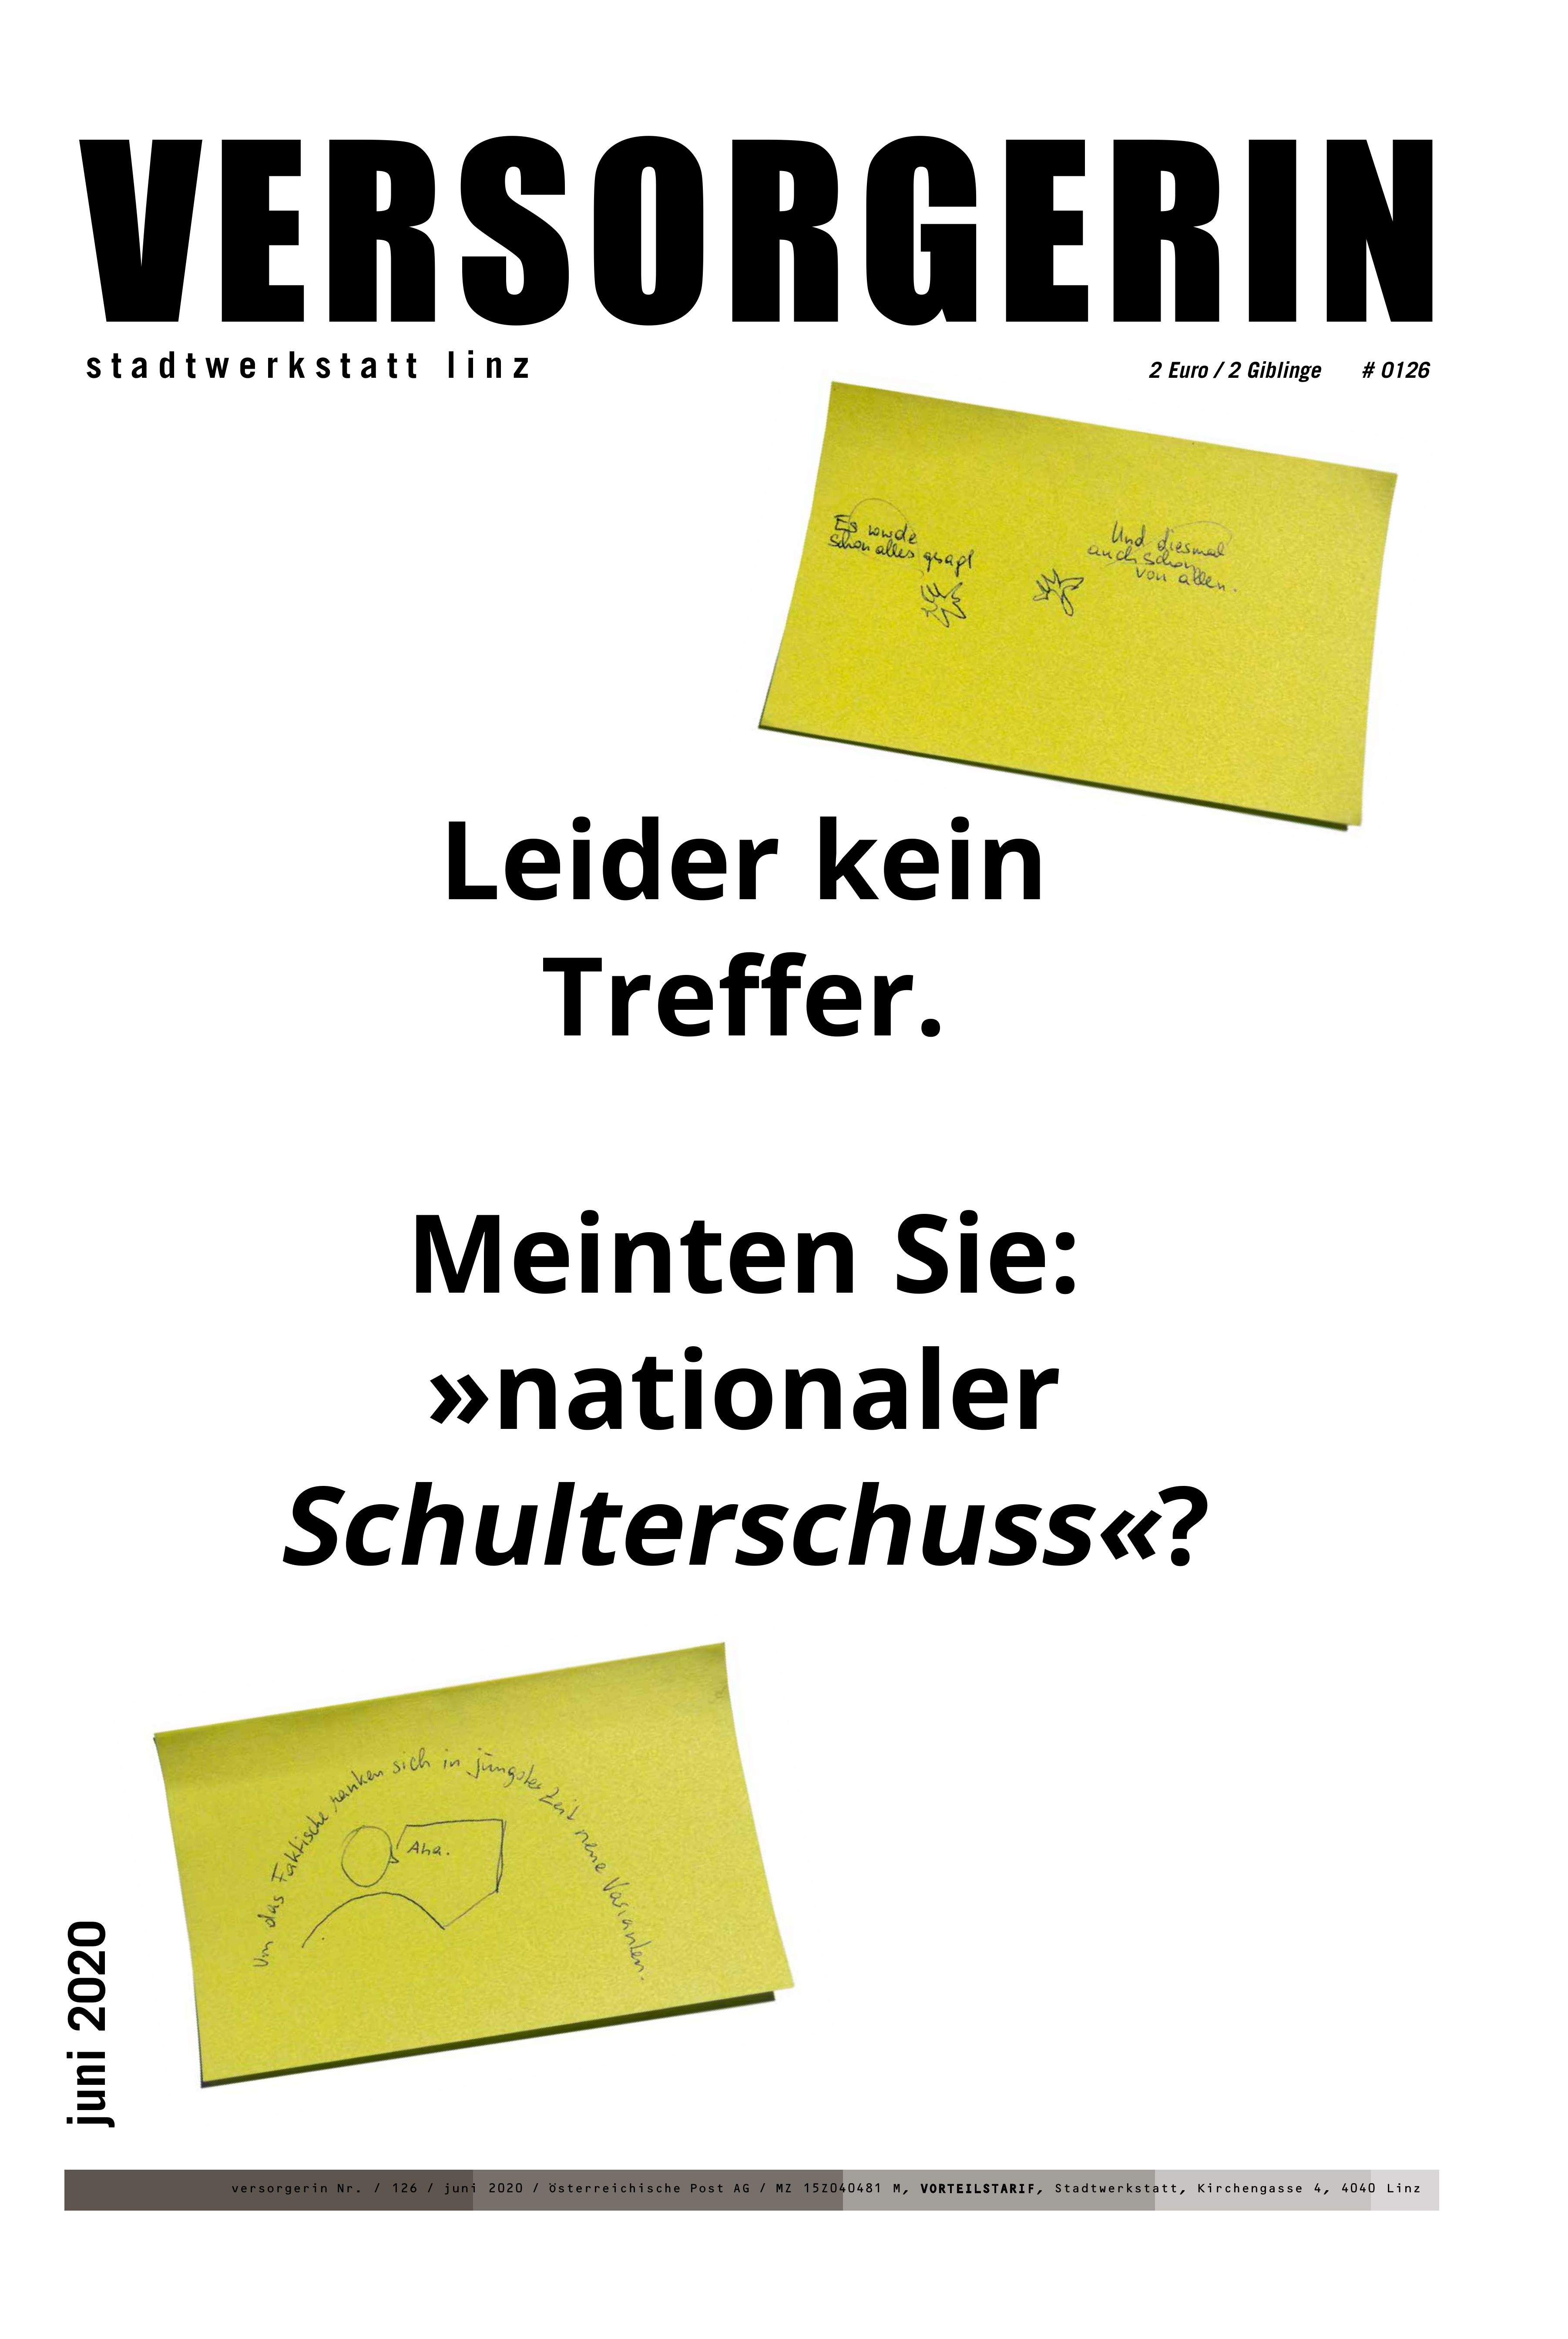 VERSORGERIN
stadtwerkstatt linz
2 Euro / 2 Giblinge # 0126
Es wurde
schon alles gesagt
Und diesmal
auch schon
von allen.
Leider kein
Treffer.
Meinten Sie:
»nationaler
Schulterschuss«?
Um das Faktische ranken sich in jüngster Zeit neue Varianten.
Aha.
juni 2020
versorgerin Nr. / 126 / juni 2020 / österreichische Post AG / MZ 15Z040481 M, VORTEILSTARIF, Stadtwerkstatt, Kirchengasse 4, 4040 Linz